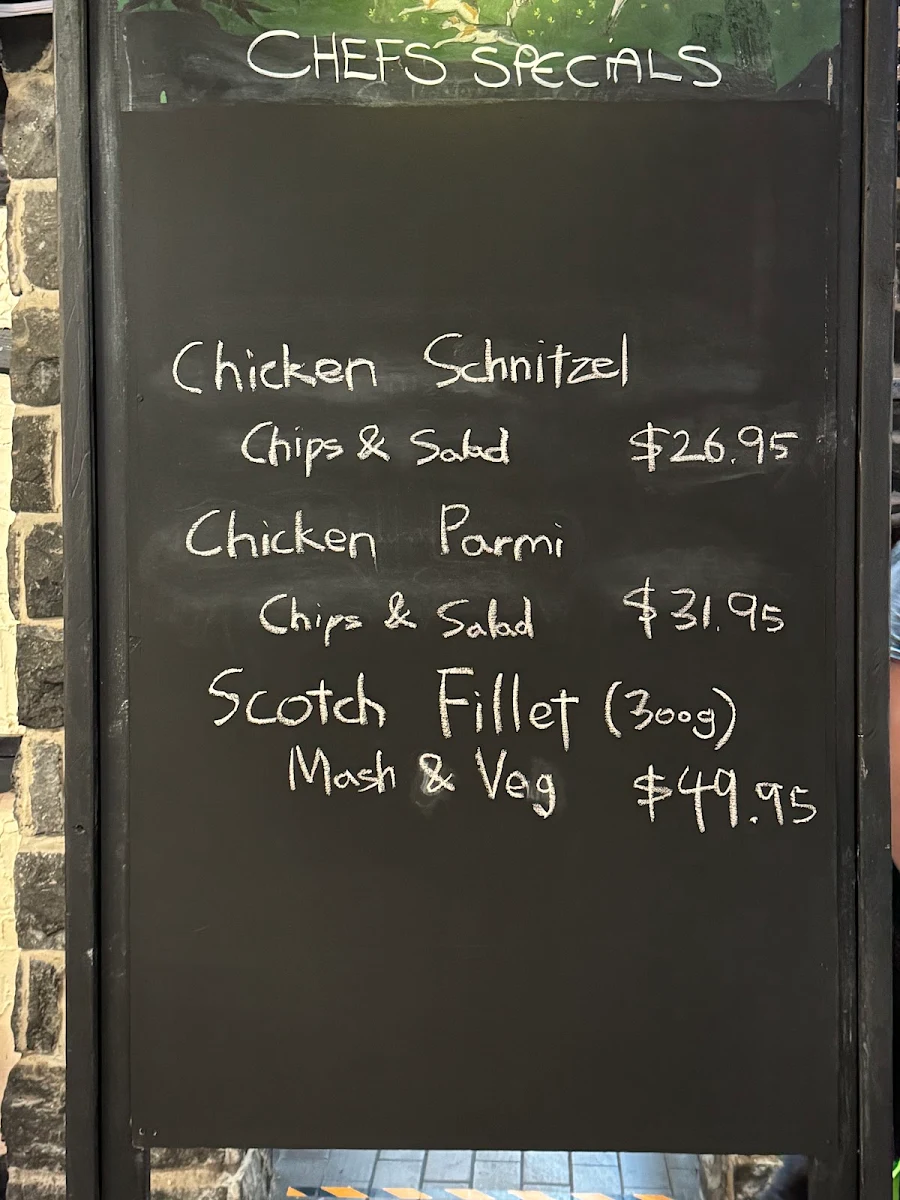 CHEFS SPECIALS
Chicken Schnitzel
Chips & Salad $26.95
Chicken Parmi
Chips & Salad $31.95
Scotch Fillet (300g)
Mash & Veg $49.95